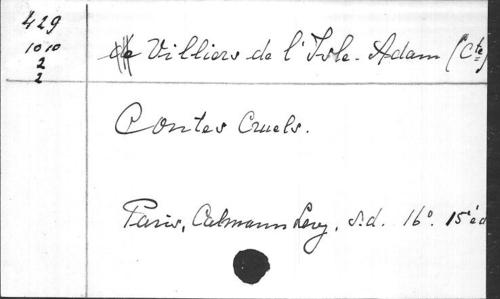 429
1010
2
2
de Villiers de l'Isle-Adam (Cte)
Contes Cruels.
Paris, Calmann Levy, s.d. 16º. 15e éd